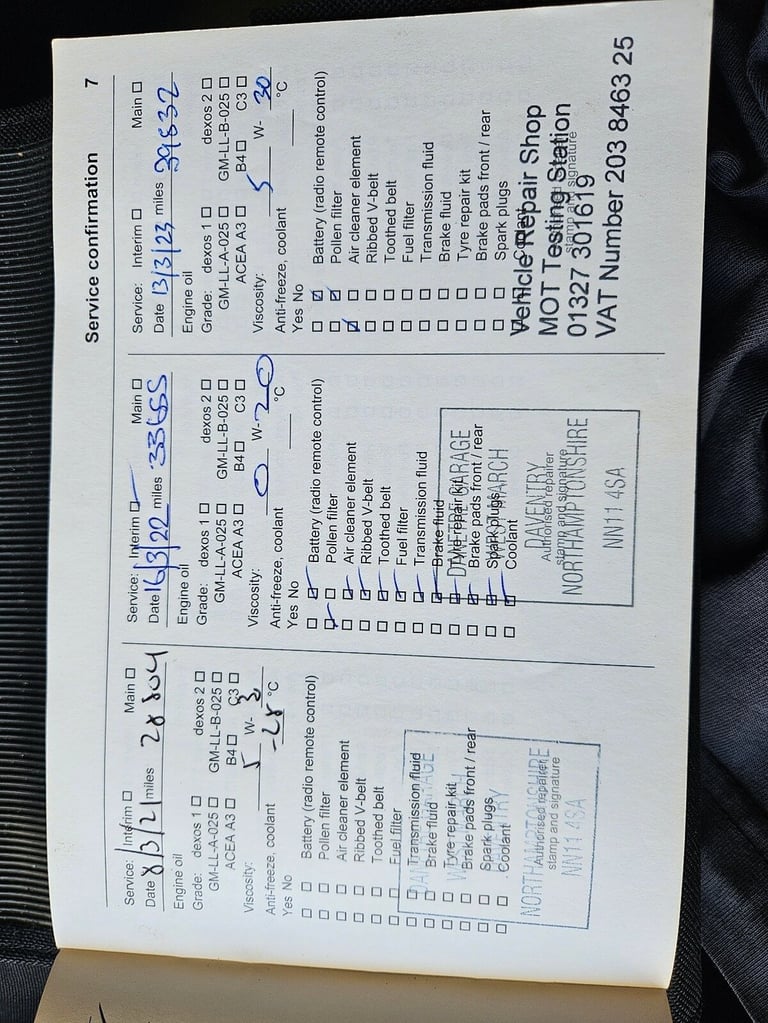 Service confirmation 7
Service: Interim ☐ Main ☐
Date 8/3/21 miles 28804
Engine oil
Grade: dexos 1 ☐ dexos 2 ☐
GM-LL-A-025 ☐ GM-LL-B-025 ☐
ACEA A3 ☐ B4 ☐ C3 ☐
Viscosity: 5 W- 3
Anti-freeze, coolant -28 °C
Yes No
☐ ☐ Battery (radio remote control)
☐ ☐ Pollen filter
☐ ☐ Air cleaner element
☐ ☐ Ribbed V-belt
☐ ☐ Toothed belt
☐ ☐ Fuel filter
☐ ☐ Transmission fluid
☐ ☐ Brake fluid
☐ ☐ Tyre repair kit
☐ ☐ Brake pads front / rear
☐ ☐ Spark plugs
☐ ☐ Coolant
Authorised repairer
stamp and signature
NORTHAMPTONSHIRE
NN11 4SA
Service: Interim ☐ Main ☐
Date 16/3/22 miles 33655
Engine oil
Grade: dexos 1 ☐ dexos 2 ☐
GM-LL-A-025 ☐ GM-LL-B-025 ☐
ACEA A3 ☐ B4 ☐ C3 ☐
Viscosity: 0 W- 20
Anti-freeze, coolant °C
Yes No
☐ ☑ Battery (radio remote control)
☑ ☐ Pollen filter
☐ ☑ Air cleaner element
☐ ☑ Ribbed V-belt
☐ ☑ Toothed belt
☐ ☑ Fuel filter
☐ ☑ Transmission fluid
☐ ☑ Brake fluid
☐ ☑ Tyre repair kit
☐ ☑ Brake pads front / rear
☐ ☑ Spark plugs
☐ ☑ Coolant
GARAGE
MARCH
DAVENTRY
Authorised repairer
stamp and signature
NORTHAMPTONSHIRE
NN11 4SA
Service: Interim ☐ Main ☐
Date 13/3/23 miles 39832
Engine oil
Grade: dexos 1 ☐ dexos 2 ☐
GM-LL-A-025 ☐ GM-LL-B-025 ☐
ACEA A3 ☐ B4 ☐ C3 ☐
Viscosity: 5 W- 30
Anti-freeze, coolant °C
Yes No
☐ ☑ Battery (radio remote control)
☐ ☑ Pollen filter
☑ ☐ Air cleaner element
☐ ☐ Ribbed V-belt
☐ ☐ Toothed belt
☐ ☐ Fuel filter
☐ ☐ Transmission fluid
☐ ☐ Brake fluid
☐ ☐ Tyre repair kit
☐ ☐ Brake pads front / rear
☐ ☐ Spark plugs
☐ ☐ Coolant
Vehicle Repair Shop
MOT Testing Station
stamp and signature
01327 301619
VAT Number 203 8463 25